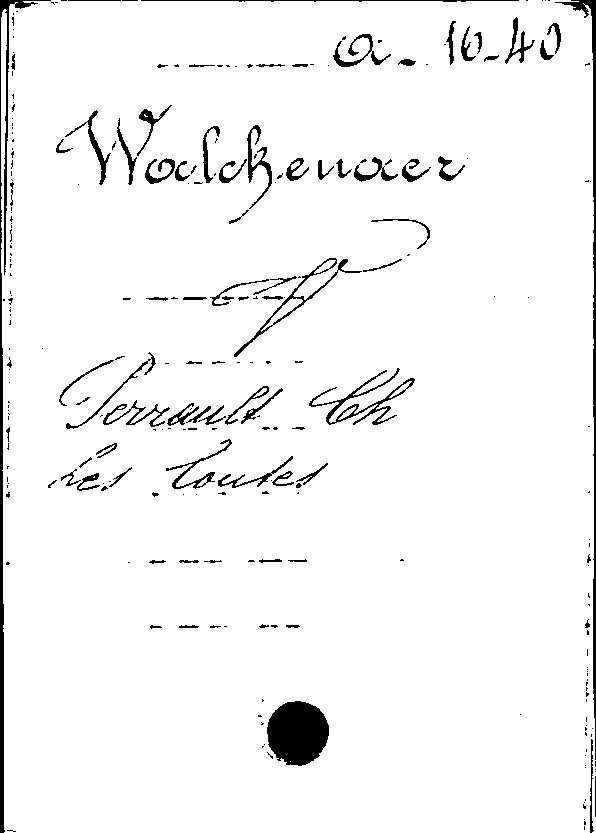 a - 10-40
Walckenaer
V
Perrault Ch
Les Contes